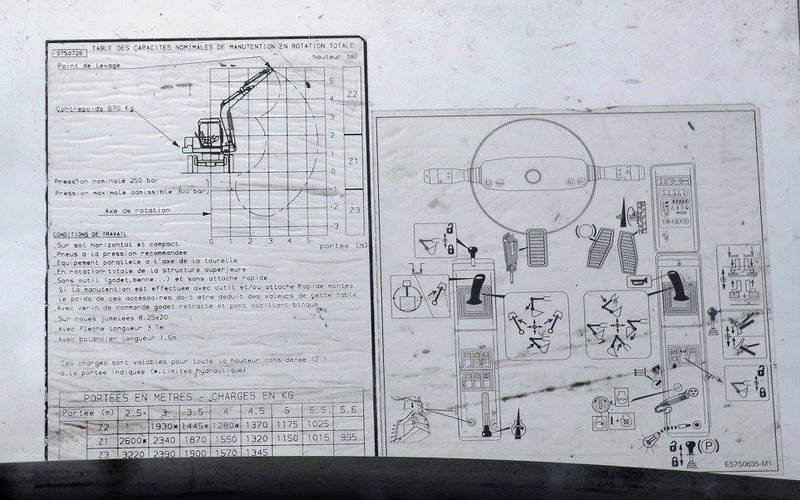 5750726
TABLE DES CAPACITES NOMINALES DE MANUTENTION EN ROTATION TOTALE
Point de levage
hauteur (m)
Contrepoids 670 Kg
5
4
3
2
1
0
-1
-3
Z2
Z1
Z3
Pression nominale 250 bar
Pression maximale admissible 300 bar
Axe de rotation
0 1 2 3 4 5
portee (m)
CONDITIONS DE TRAVAIL
_Sur sol horizontal et compact
_Pneus a la pression recommandee
_Equipement parallele a l'axe de la tourelle
_En rotation totale de la structure superieure
_Sans outil (godet,benne...) et sans attache rapide.
Si la manutention est effectuee avec outil et/ou attache rapide montes
le poids de ces accessoires doit etre deduit des valeurs de cette table
_Avec verin de commande godet retracte et pont oscillant bloque
_Sur roues jumelees 8.25x20
_Avec fleche longueur 3.1m
_Avec balancier longueur 1.6m
Ces charges sont valables pour toute la hauteur consideree (Z )
a la portee indiquee (*:limites hydraulique)
PORTEES EN METRES - CHARGES EN KG
Portee (m) 2.5 3 3.5 4 4.5 5 5.5 5.6
Z2 1930* 1445* 1280* 1370 1175 1025
Z1 2600* 2340 1870 1550 1320 1150 1015 995
Z3 3220 2390 1900 1570 1345
(P)
E5750635-M1